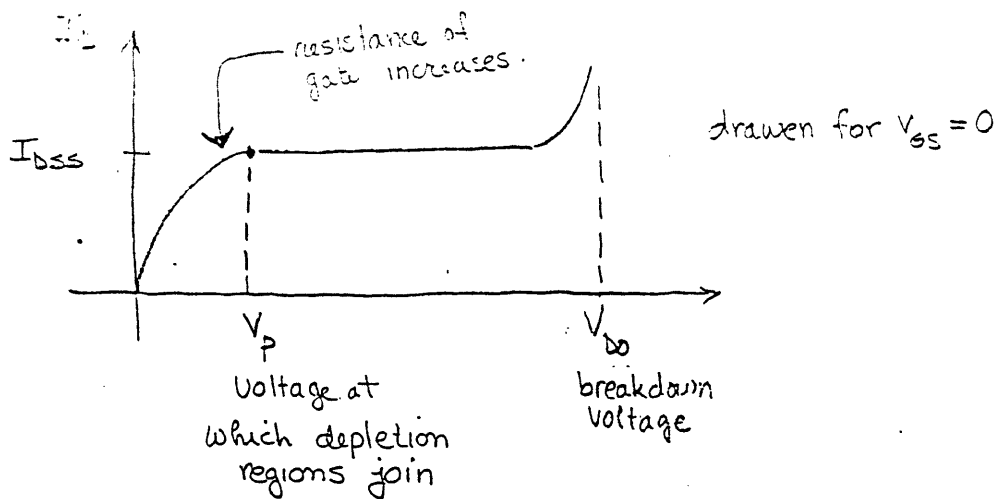 resistance of
gate increases.
I_DSS
drawen for V_GS = 0
V_P
V_DO
voltage at
which depletion
regions join
breakdown
voltage